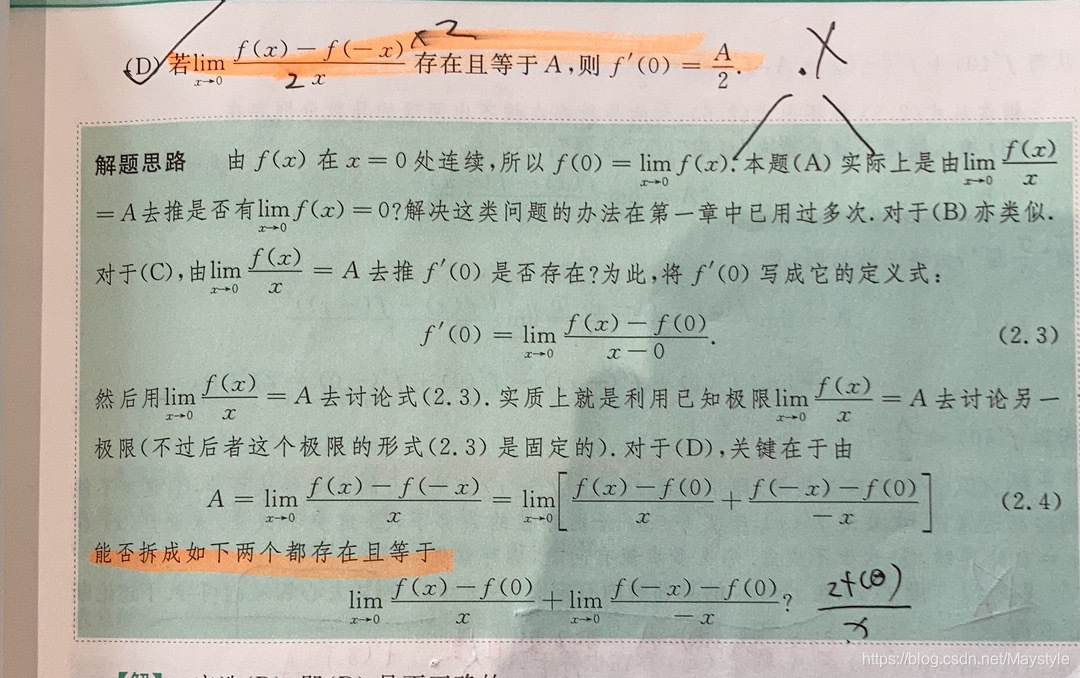 x2
(D) 若lim x→0 (f(x)-f(-x))/x 存在且等于 A,则 f′(0) = A/2.
2
.X
解题思路 由 f(x) 在 x = 0 处连续,所以 f(0) = lim x→0 f(x). 本题(A) 实际上是由lim x→0 f(x)/x
= A去推是否有lim x→0 f(x) = 0?解决这类问题的办法在第一章中已用过多次. 对于(B) 亦类似.
对于(C),由lim x→0 f(x)/x = A 去推 f′(0) 是否存在?为此,将 f′(0) 写成它的定义式:
f′(0) = lim x→0 (f(x)-f(0))/(x-0). (2.3)
然后用lim x→0 f(x)/x = A 去讨论式(2.3). 实质上就是利用已知极限lim x→0 f(x)/x = A 去讨论另一
极限(不过后者这个极限的形式(2.3) 是固定的). 对于(D),关键在于由
A = lim x→0 (f(x)-f(-x))/x = lim x→0 [(f(x)-f(0))/x + (f(-x)-f(0))/(-x)] (2.4)
能否拆成如下两个都存在且等于
lim x→0 (f(x)-f(0))/x + lim x→0 (f(-x)-f(0))/(-x)?
2f(0)/x
https://blog.csdn.net/Maystyle